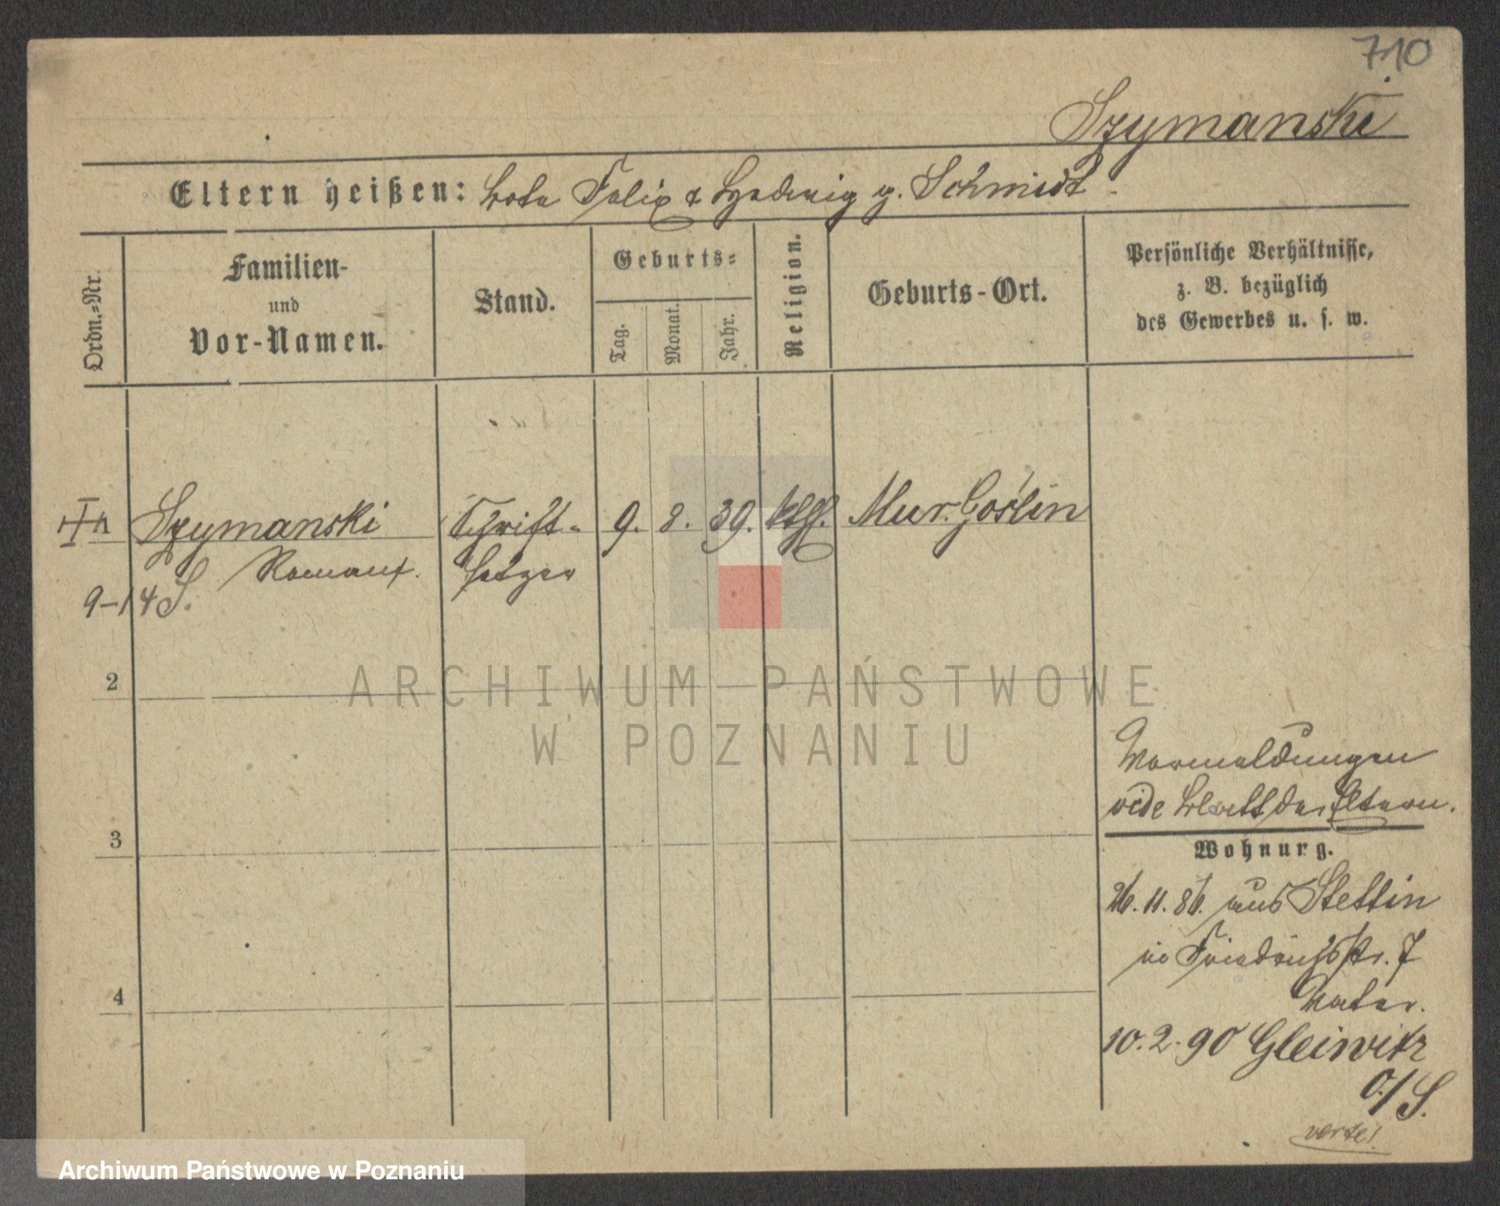 710
Szymański
Eltern heißen: Felix & Hedwig g. Schmidt.
Ordn.-Nr.
Familien-
und
Vor-Namen.
Stand.
Geburts-
Tag.
Monat.
Jahr.
Religion.
Geburts-Ort.
Persönliche Verhältnisse,
z. B. bezüglich
des Gewerbes u. s. w.
Szymanski Schrift- 9. 8. 39. kthl. Mur. Goślin
Roman setzer
9-14 S.
2
3
4
ARCHIWUM PAŃSTWOWE
W POZNANIU
Vormeldungen
vide Blatt der Eltern.
Wohnung.
26. 11. 86. aus Stettin
in Friedrichstr. 7
Vater.
10. 2. 90 Gleiwitz
O/S.
verte!
Archiwum Państwowe w Poznaniu